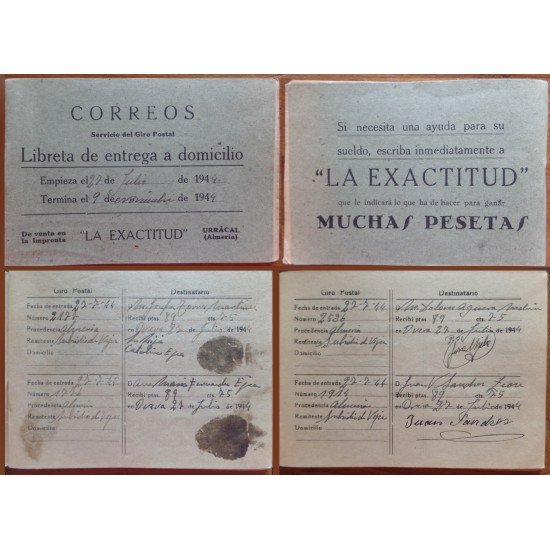 CORREOS
Servicio del Giro Postal
Libreta de entrega a domicilio
Empieza el 27 de Julio de 1944.
Termina el 9 de noviembre de 1944
De venta en la Imprenta "LA EXACTITUD" URRÁCAL (Almería)
Si necesita una ayuda para su
sueldo, escriba inmediatamente a
"LA EXACTITUD"
que le indicará lo que ha de hacer para ganar
MUCHAS PESETAS
Giro Postal Destinatario
Fecha de entrada 27-7-44 D.
Número Recibí ptas. 89 cts. 75
Procedencia Almería Overa 27 de Julio de 1944
Remitente Subsidio de Vejez
Domicilio
Fecha de entrada 27-7-44 D.
Número Recibí ptas. 89 cts. 75
Procedencia Almería Overa 27 de Julio de 1944
Remitente Subsidio de Vejez
Domicilio
Giro Postal Destinatario
Fecha de entrada 27-7-44 Dolores
Número Recibí ptas. 89 cts. 75
Procedencia Almería Overa 27 de Julio de 1944
Remitente Subsidio de Vejez
Domicilio
Fecha de entrada 27-7-44 D. Juan Sanchez
Número Recibí ptas. 89 cts. 75
Procedencia Almería Overa 27 de Julio de 1944
Remitente Subsidio de Vejez Juan
Domicilio